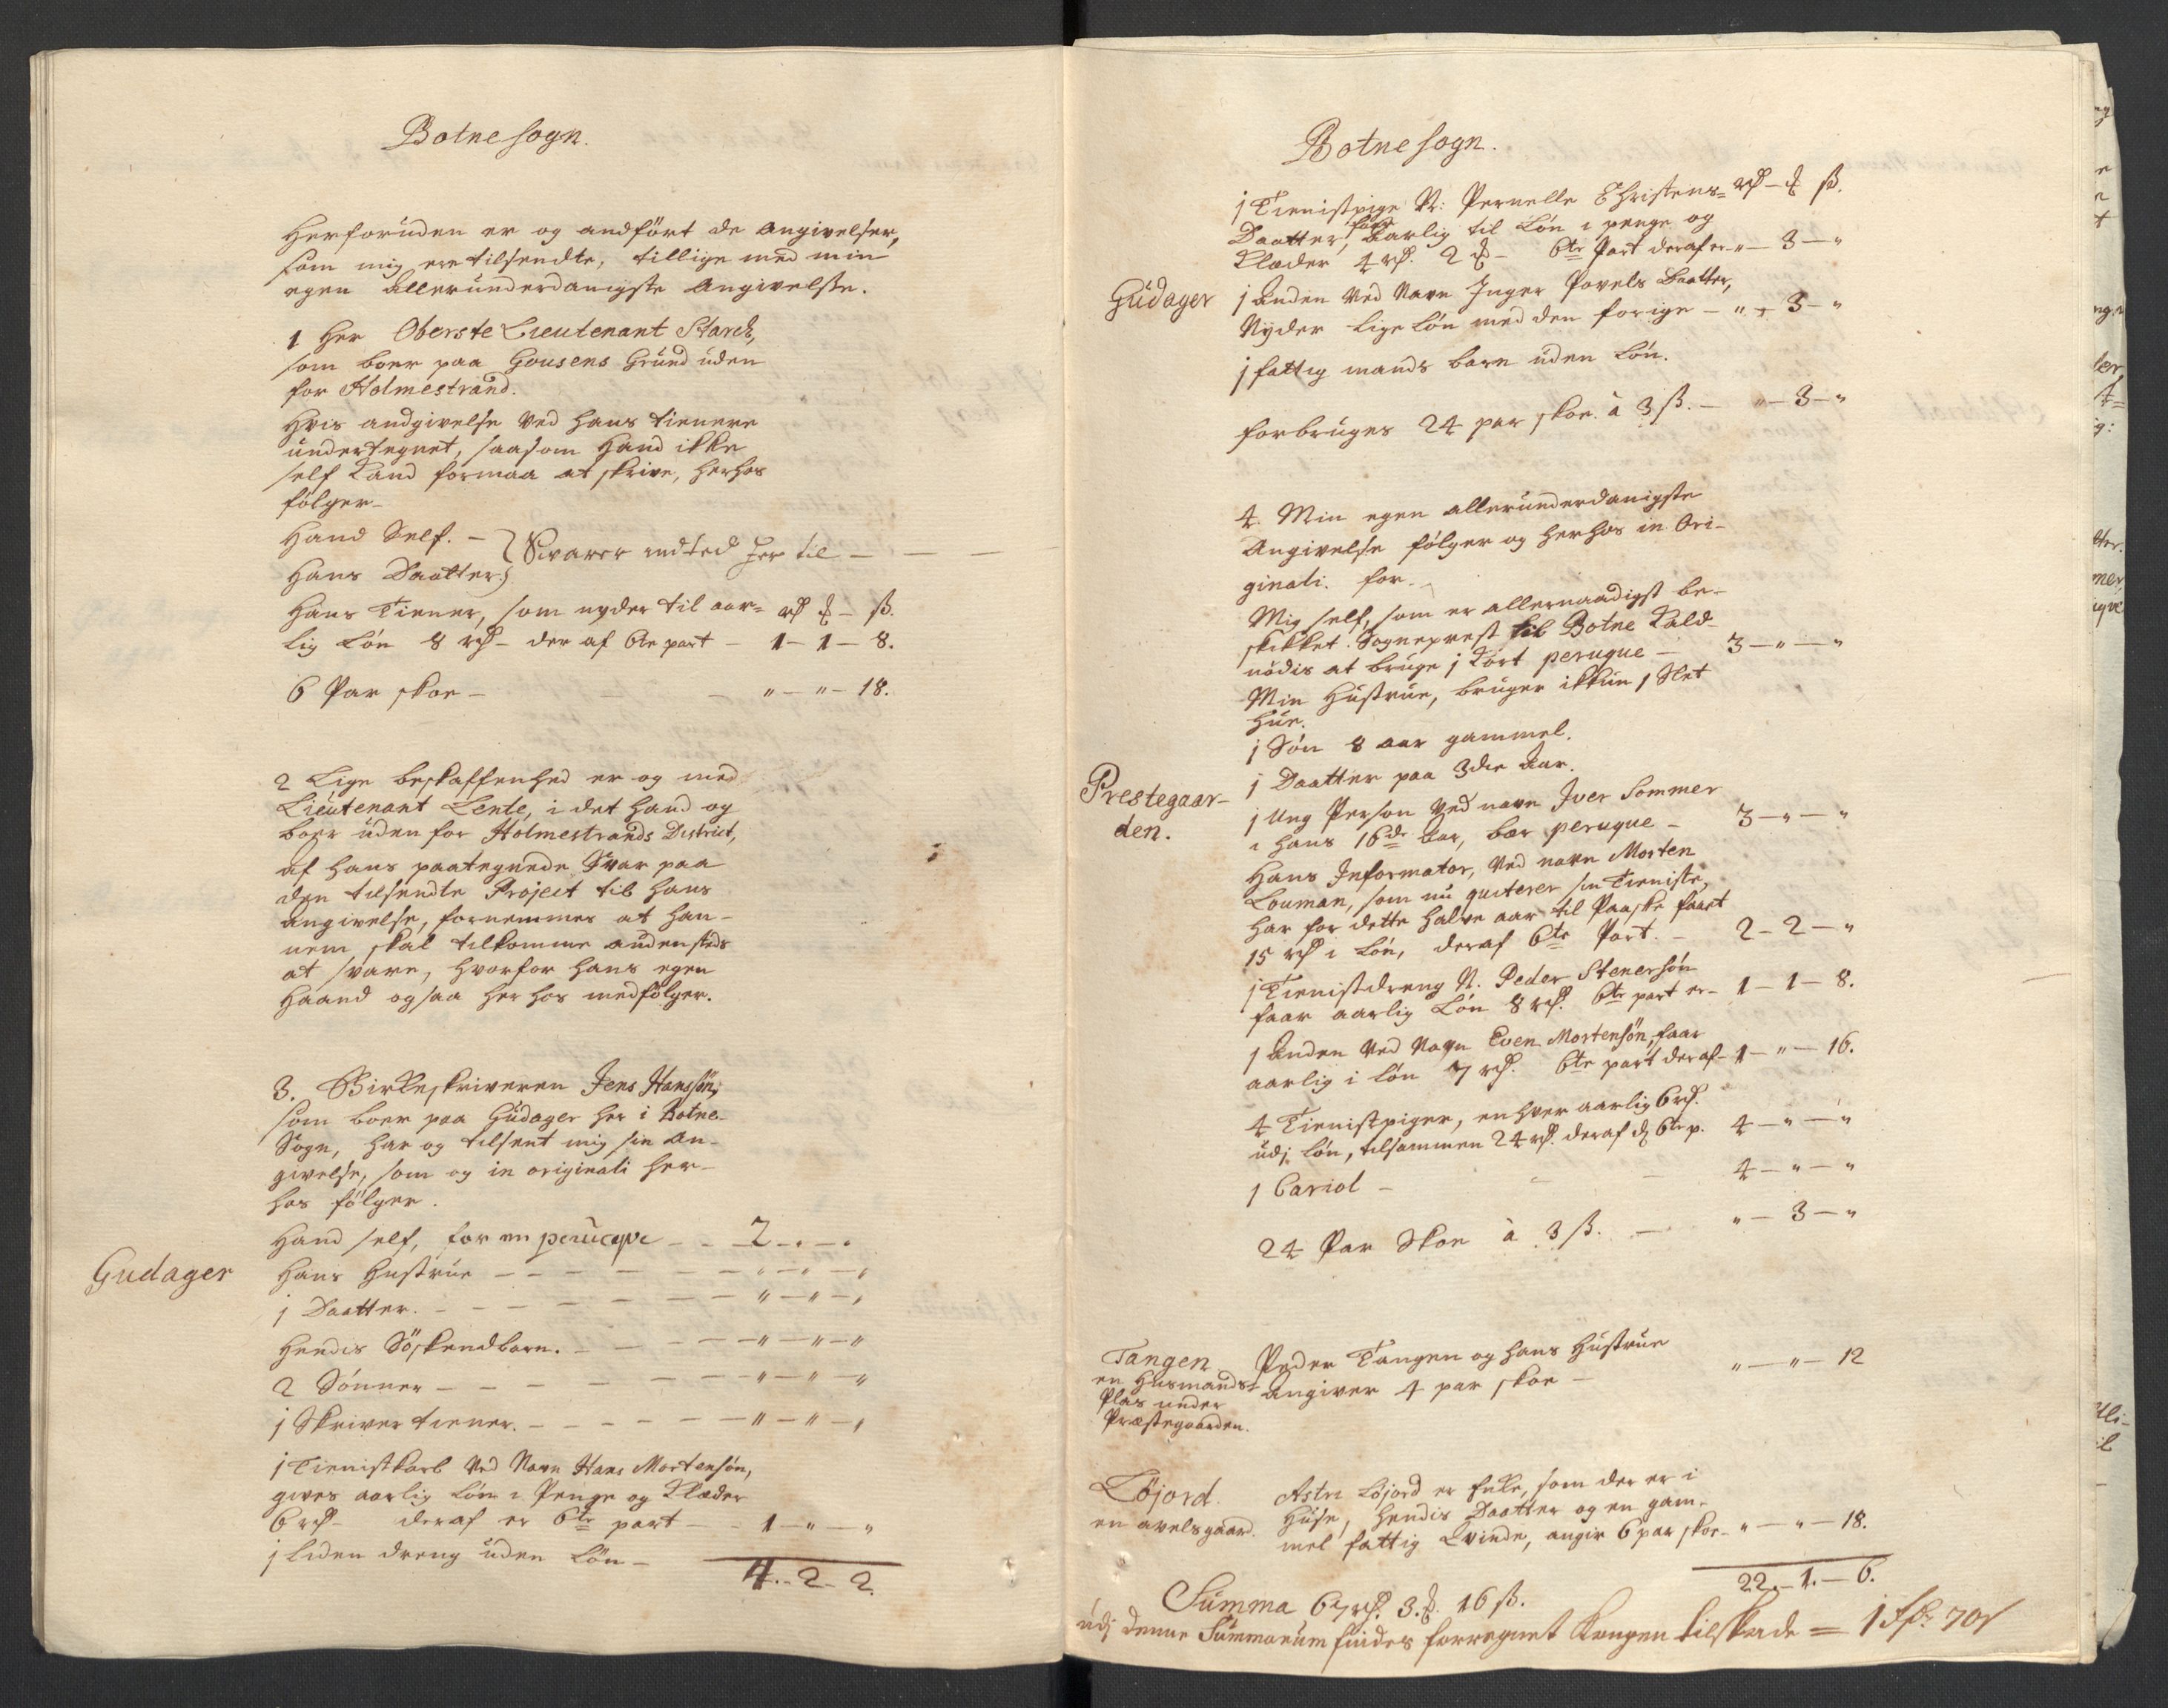 Botne sogn.
Herforuden er og andført de Angivelser,
som mig ere tilsendte, tillige med min
egen allerunderdanigste Angivelse.
1 Her Oberste Lieutenant Starck,
som boer paa Gousens Grund uden
for Holmestrand.
Hvis andgivelse ved hans tienere
undertegnet, saasom Hand ikke
self Kand formaa at skrive, herhos
følger-
Hand Self. -
Svarer indted her til - - -
Hans Daatter.
Hans Tiener, som nyder til aar= rd ₰ - ß.
lig Løn 8 rd - der af 6te part - 1 - 1 - 8.
6 Par skoe - " - " - 18.
2 Lige beskaffenhed er og med
Lieutenant Lente, i det hand og
boer uden for Holmestrands District,
af hans paategnede Svar paa
den tilsendte Project til hans
angivelse, fornemmes at han-
nem skal tilkomme andensteds
at svare, hvorfor hans egen
Haand ogsaa her hos medfølger.
3. Birkeskriveren Jens Hanssøn,
som boer paa Gudager her i Botne
Sogn, har og tilsent mig sin An-
givelse, som og in originali her-
hos følger.
Hand self, for en perucqve - - 2 - . - .
Gudager
Hans Hustrue - - - - - " - " - "
j Daatter. - - - - - - " - " - "
Hendis Søskendbarn. - - - - " - " - "
2 Sønner - - - - - - " - " - "
j Skriver tiener. - - - - - " - " - "
j Tienistkarl ved Navn Hans Mortensøn,
gives aarlig løn i Penge og Klæder
6 rd - deraf er 6te part - - 1 - " - "
j liden dreng uden Løn -
4. - 2 - 2.
Botne sogn.
j Tienistpige N: Pernelle Christens= rd - ₰ ß.
Daatter, faar aarlig til Løn i penge og
Klæder 4 rd. 2 ₰ - 6te Part deraf er " - 3 - "
Gudager
j anden ved Navn Inger Povels Daatter,
Nyder lige løn med den forige - " - 3 - "
j fattig mands barn uden Løn.
forbruges 24 par skoe à 3 ß. - " - 3 - "
4. Min egen allerunderdanigste
Angivelse følger og herhos in Ori-
ginali. for.
Mig self, som er allernaadigst be-
skikket Sogneprest til Botne Kald
nødis at bruge j Kort peruque - 3 - " - "
Min Hustrue, bruger ikkun j Slet
Hue.
j Søn 8 aar gammel.
j Daatter paa 3die Aar.
Prestegaar-
den.
j Ung Person ved navn Iver Sommer
i hans 16de Aar, bær peruque - 3 - " - "
Hans Informator, ved navn Morten
Louman, som nu quiterer sin Tieniste,
har for dette halve aar til Paaske faaet
15 rd i Løn, deraf 6te Part. - 2 - 2 - "
j Tienistdreng N. Peder Stenersøn
faar aarlig Løn 8 rd. 6te part er - 1 - 1 - 8.
j anden ved Navn Even Mortensøn, faar
aarlig i løn 7 rd. 6te part deraf - 1 - " - 16.
4 Tienistpiger, enhver aarlig 6 rd.
udj løn, tilsammen 24 rd. deraf d 6te p. 4 - " - "
1 Cariol - - - 4 - " - "
24 Par Skoe à 3 ß. - " - 3 - "
Tangen
en Husmands-
Plas under
Præstegaarden.
Peder Tangen og hans Hustrue
Angiver 4 par skoe - " - " - 12
Løjord.
en avelsgaard.
Astri Løjord er Enke, som der er i
Huse, hendis Daatter og en gam-
mel fattig Qvinde, angir 6 par skoe - " - " - 18.
22. - 1. - 6.
Summa 67 rd. 3. ₰. 16 ß.
udj denne Summarum findes forregnet Kongen tilskade =